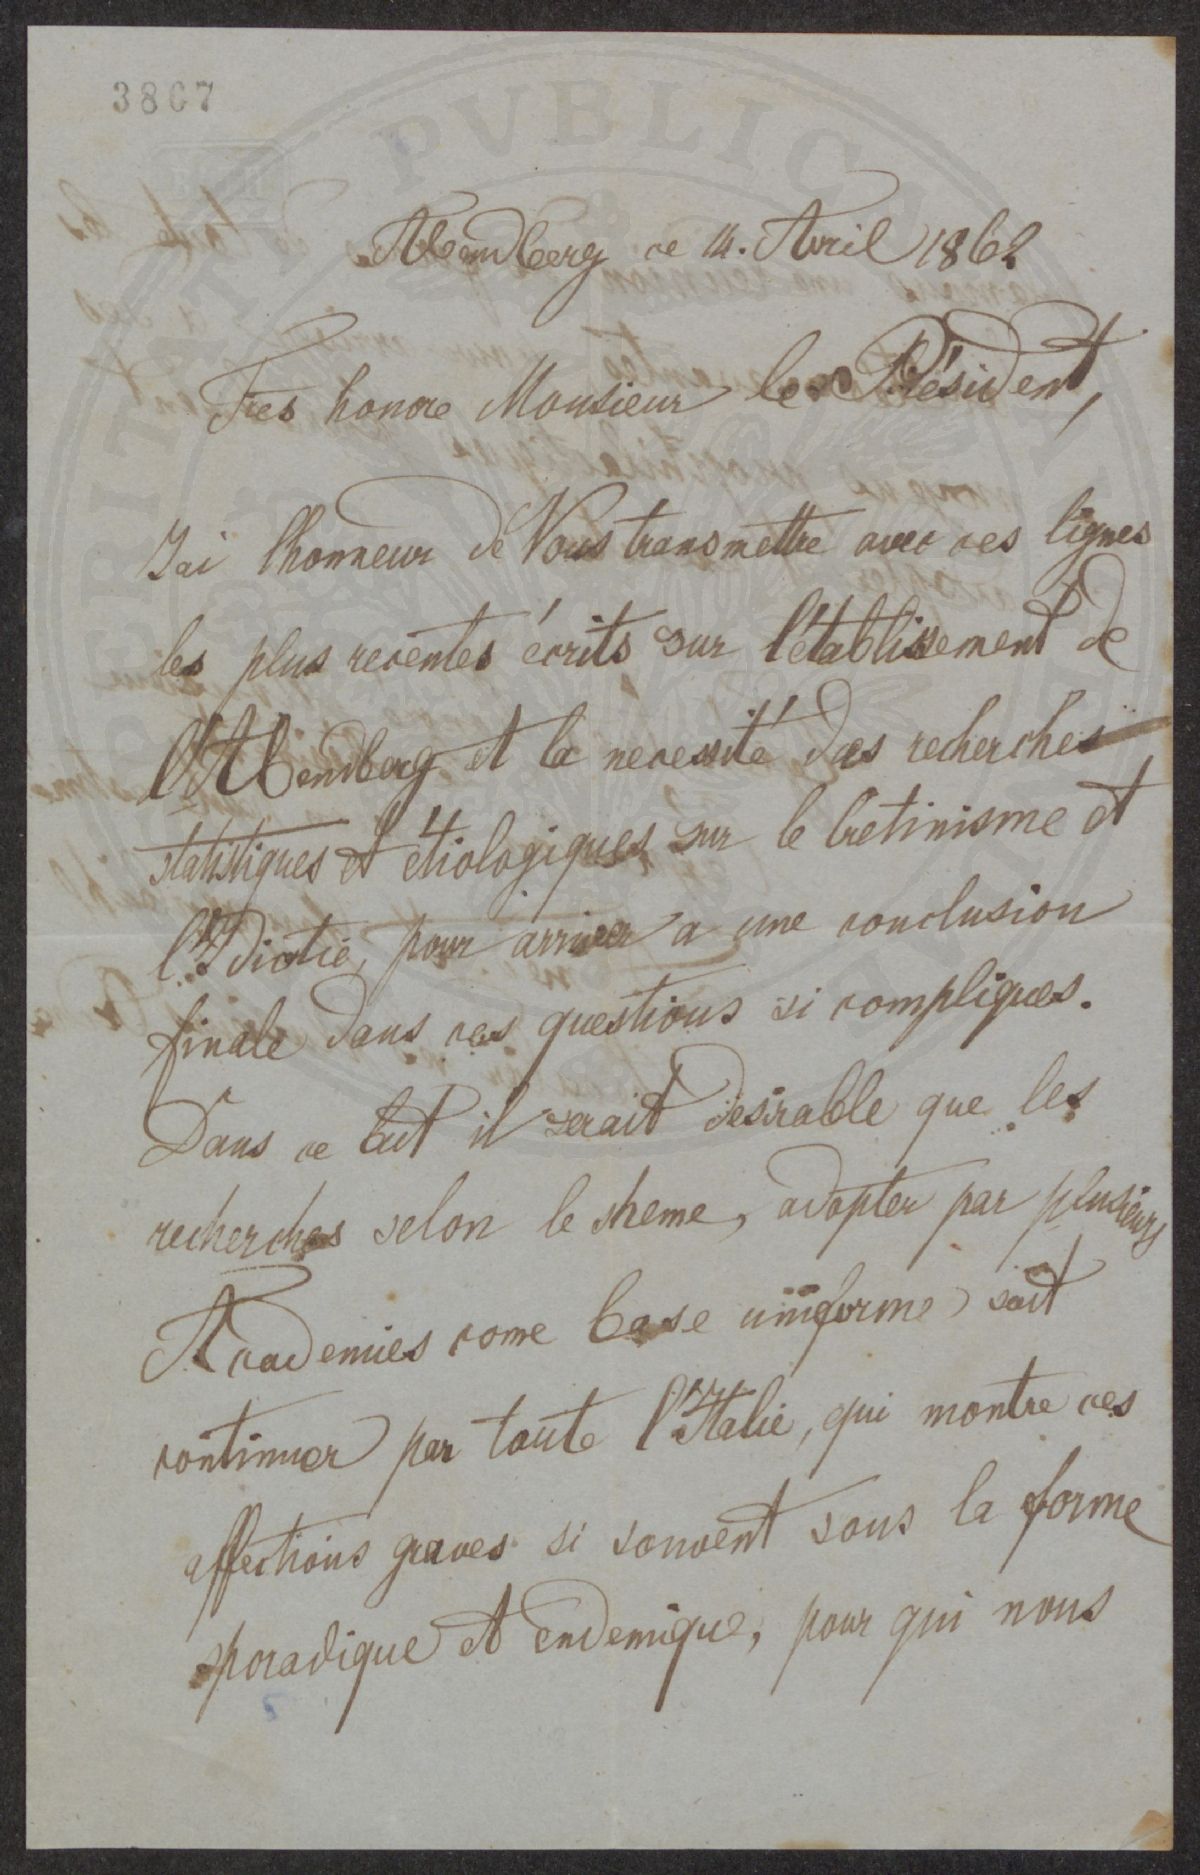 3807
Abendberg ce 14. Avril 1862
Tres honore Monsieur le Président,
J'ai l'honneur de Vous transmettre avec ces lignes
les plus recentes écrits sur l'établissement de
l'Abendberg et la necessité des recherches
statistiques et étiologiques sur le Cretinisme et
l'Idiotie, pour arriver a une conclusion
finale dans ces questions si compliques.
Dans ce but il serait desirable que les
recherches selon le sheme, adopter par plusieurs
Academies come base uniforme soit
continuer par toute l'Italie, qui montre ces
affections graves si souvent sous la forme
sporadique et endemique, pour qui nous